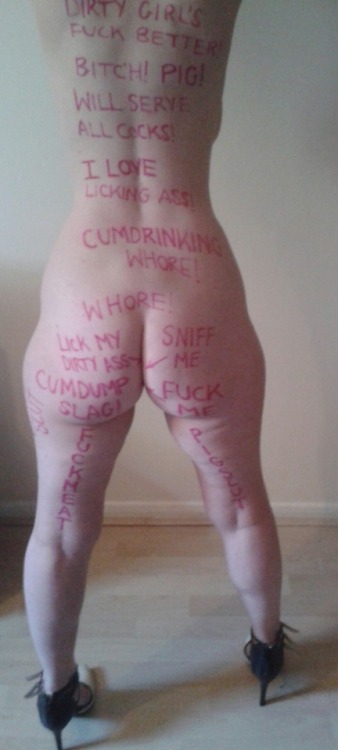 DIRTY GIRL'S
FUCK BETTER!
BITCH! PIG!
WILL SERVE
ALL COCKS!
I LOVE
LICKING ASS!
CUMDRINKING
WHORE!
WHORE!
LICK MY
DIRTY ASS
SNIFF
ME
CUMDUMP
SLAG!
FUCK
ME
FUCKMEAT